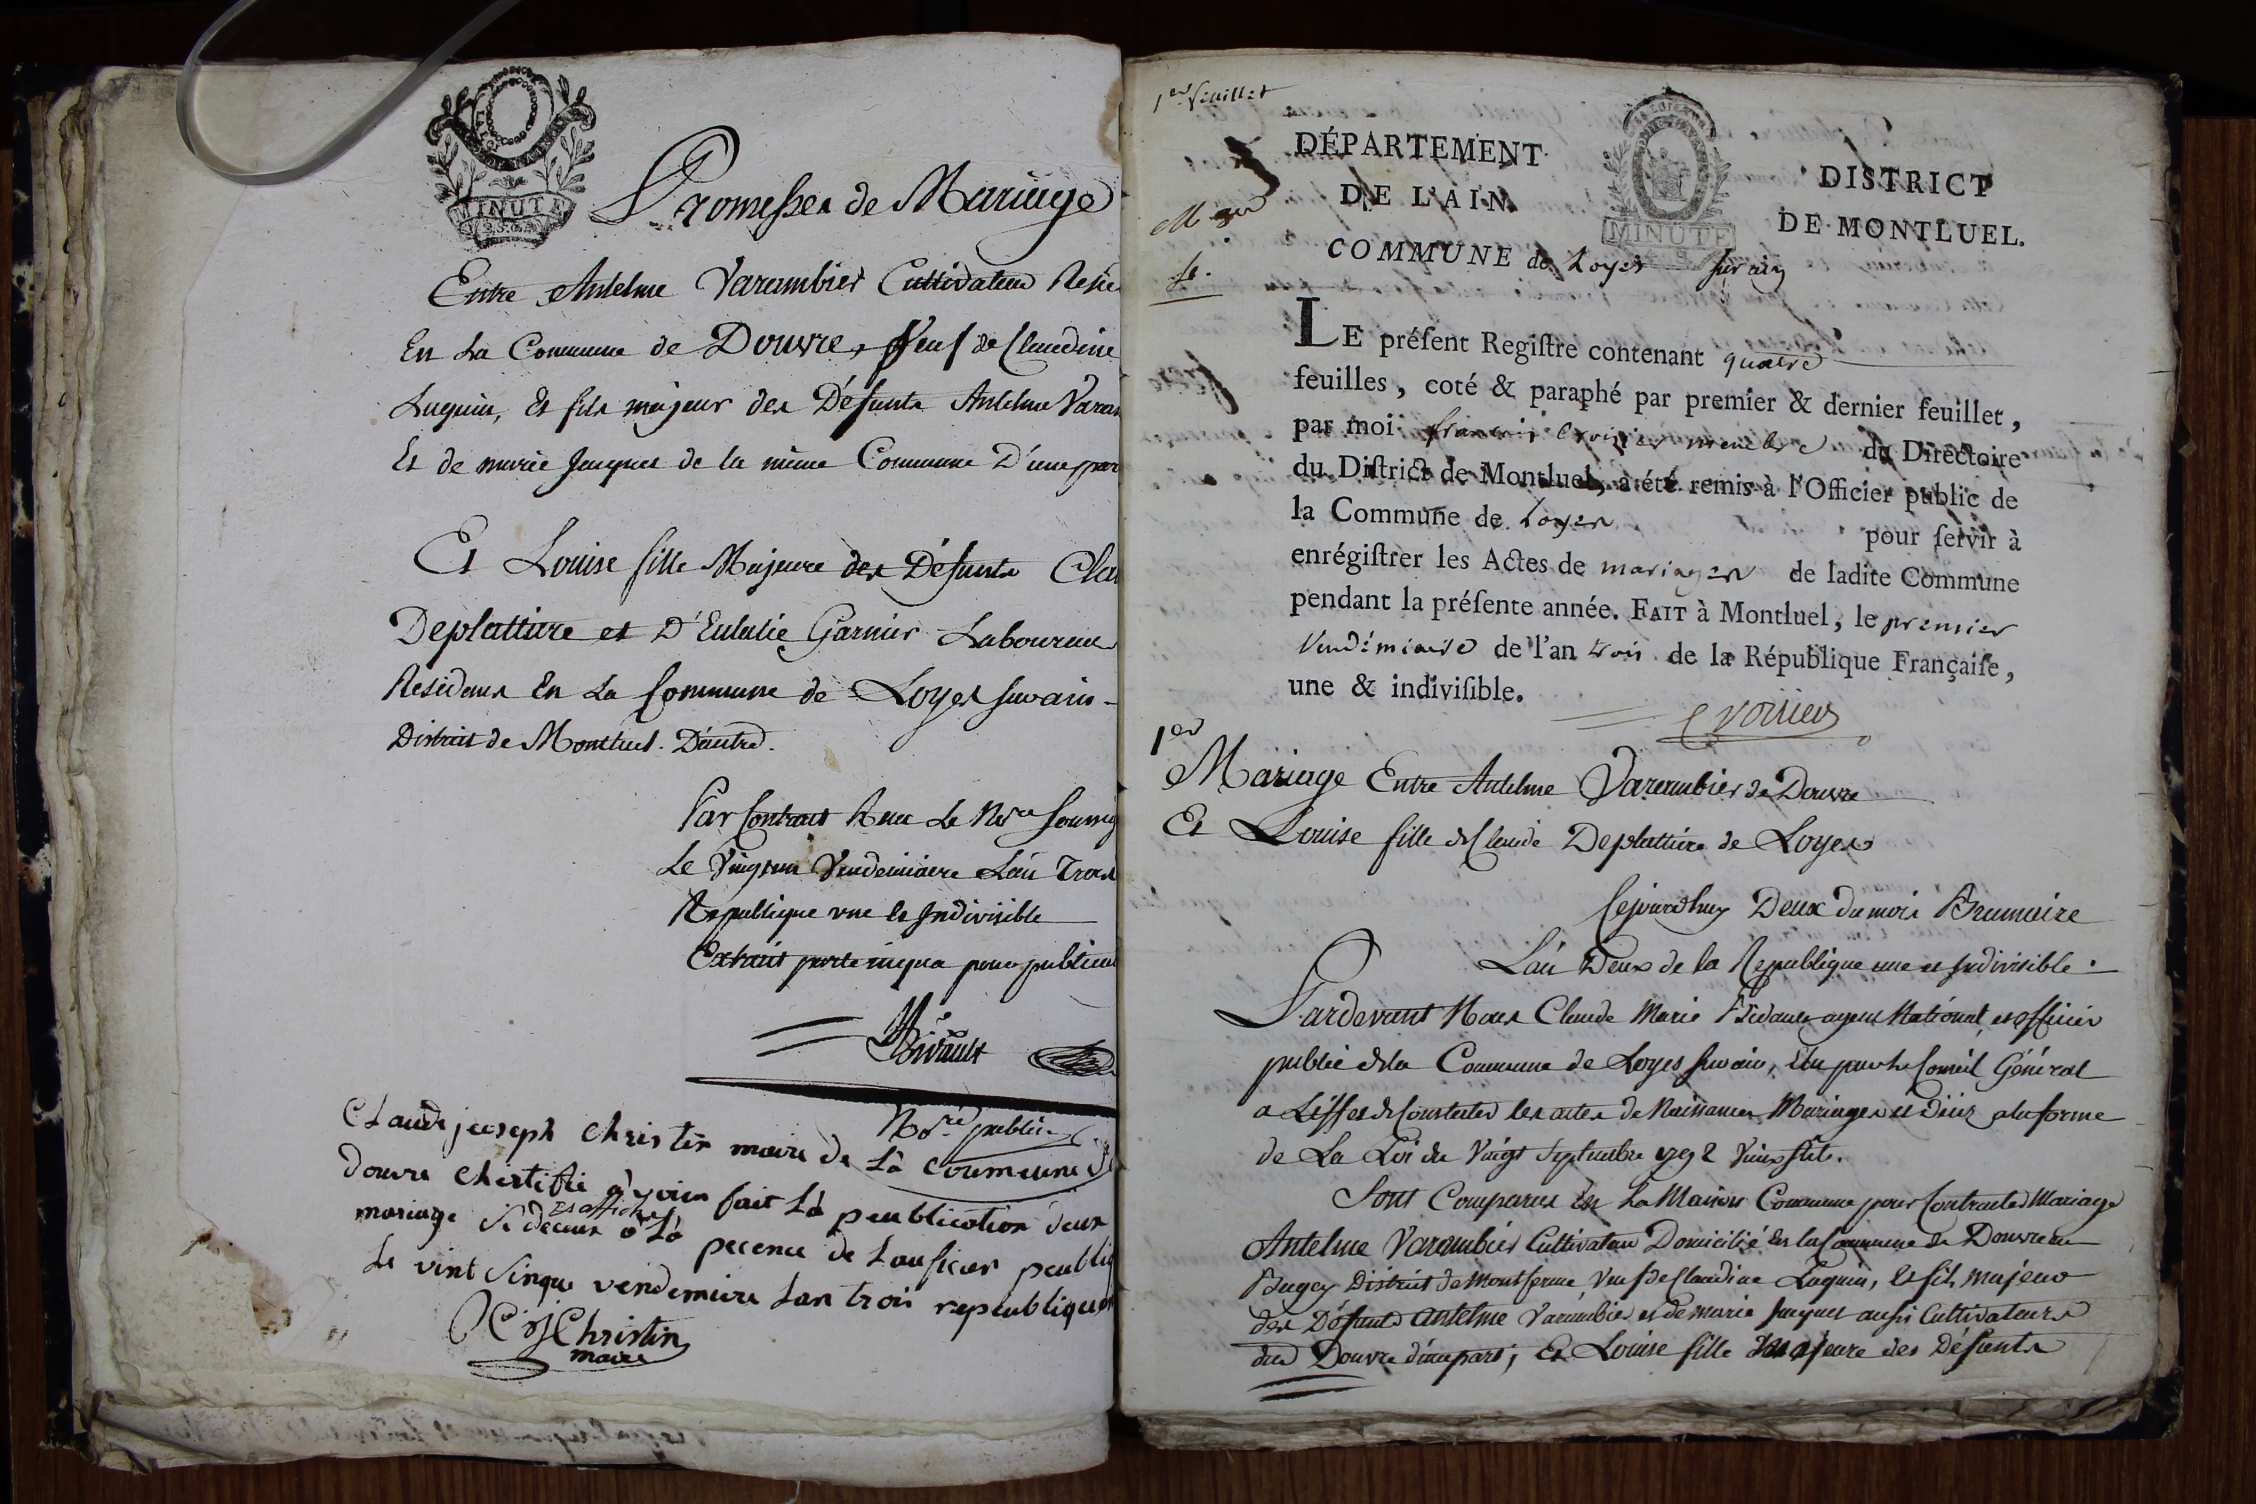 MINUTE
Promesses de Mariage
Entre Antelme Varambier Cultivateur
En La Commune de Douvre, Veuf de Claudine
Luquin, et fils majeur des Défunts Antelme Varam
Et de marie Jacquet de la même Commune D'une par
Et Louise fille Majeure des Défunts Cla
Deplatture et D'Eulalie Garnier Laboureur
Residens En La Commune de Loyes sur ain
District de Montluel. D'autre.
Par Contrat Recu Le Nore soussig
Le Vingt un Vendemiaire L'an Trois
Republique une et Indivisible
Extrait porté icy pour
Bivault
Nore public
Claude joseph christin maire de La coumeune de
douvre chertifie avoir fait La peublication deux
et affiche
mariage si deçeux a La pecence de Laufisier peubliq
Le vint sinque vendemiere Lan trois repeublique
C J Christin
maire
1er feuillet
DÉPARTEMENT
DE L'AIN
MINUTE
DISTRICT
DE MONTLUEL.
COMMUNE de Loyes sur ain
LE préſent Regiſtre contenant quatre
feuilles, coté & paraphé par premier & dernier feuillet,
par moi françois membre du Directoire
du Diſtrict de Montluel, a été remis à l'Officier public de
la Commune de Loyes pour ſervir à
enrégiſtrer les Actes de mariages de ladite Commune
pendant la préſente année. FAIT à Montluel, le premier
Vendémiaire de l'an trois de la République Françaiſe,
une & indiviſible.
1er
Mariage Entre Antelme Varambier de Douvre
Et Louise fille de Claude Deplatture de Loyes
Cejourdhuy Deux du mois Brumaire
L'an Deux de la Republique une et Indivisible.
Pardevant Nous Claude Marie agent National et officier
public de la Commune de Loyes sur ain, élu par le Conseil Général
a L'effet de Constater les actes de Naissances Mariages et décès a la forme
de La Loi du Vingt Septembre 1792 vieux stile.
Sont Comparus En La Maison Commune pour Contracter Mariage
Antelme Varambier Cultivateur Domicilié En la Commune de Douvre en
Bugey District de Montferme, Veuf de Claudine Luquin, et fils majeur
des Défunts Antelme Varambier et de marie Jacquet aussi Cultivateurs
dud Douvre d'une part; Et Louise fille Majeure des Défunts